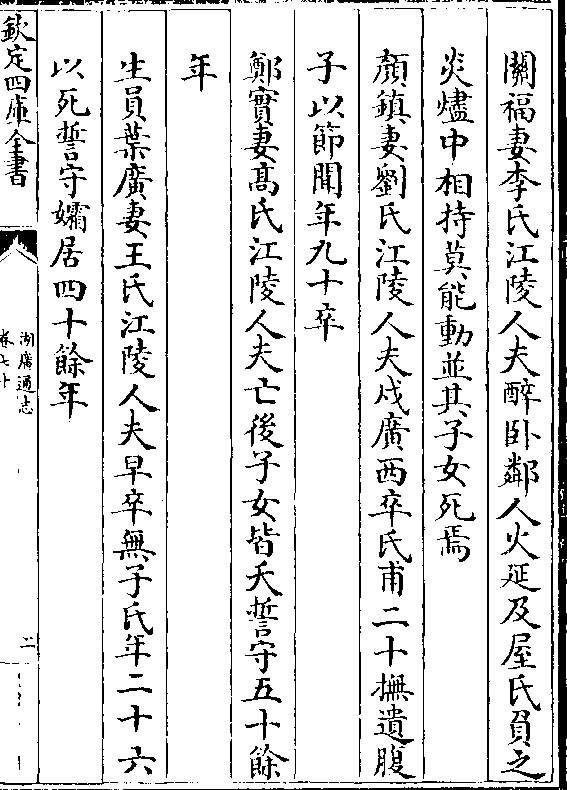 關福妻李氏江陵人夫醉卧鄰人火延及屋氏負之
炎燼中相持莫能動並其子女死焉
顏鎮妻劉氏江陵人夫戍廣西卒氏甫二十撫遺腹
子以節聞年九十卒
鄭實妻髙氏江陵人夫亡後子女皆夭誓守五十餘
年
生員葉廣妻王氏江陵人夫早卒無子氏年二十六
以死誓守孀居四十餘年
欽定四庫全書
湖廣通志
卷七十
二